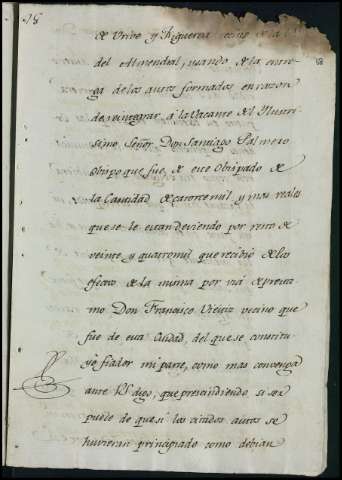 de Uribe y Figueroa vecino de la
del Almendral, usando de la entre
ga de los autos formados en razon
de reintegrar a la Vacante del Illustri
simo Señor Don Santiago Palmero
obispo que fue de este Obispado de
la Cantidad de catorce mil y mas reales
que se le estan deviendo por resto de
veinte y quatro mil que recibió de los
efectos de la misma por via de presta
mo Don Francisco vecino que
fue de esta Ciudad del que se constitu
yó fiador mi parte, como mas convenga
ante VS digo, que prescindiendo si se
puede de que si los citados autos se
hubieran principiado como debian